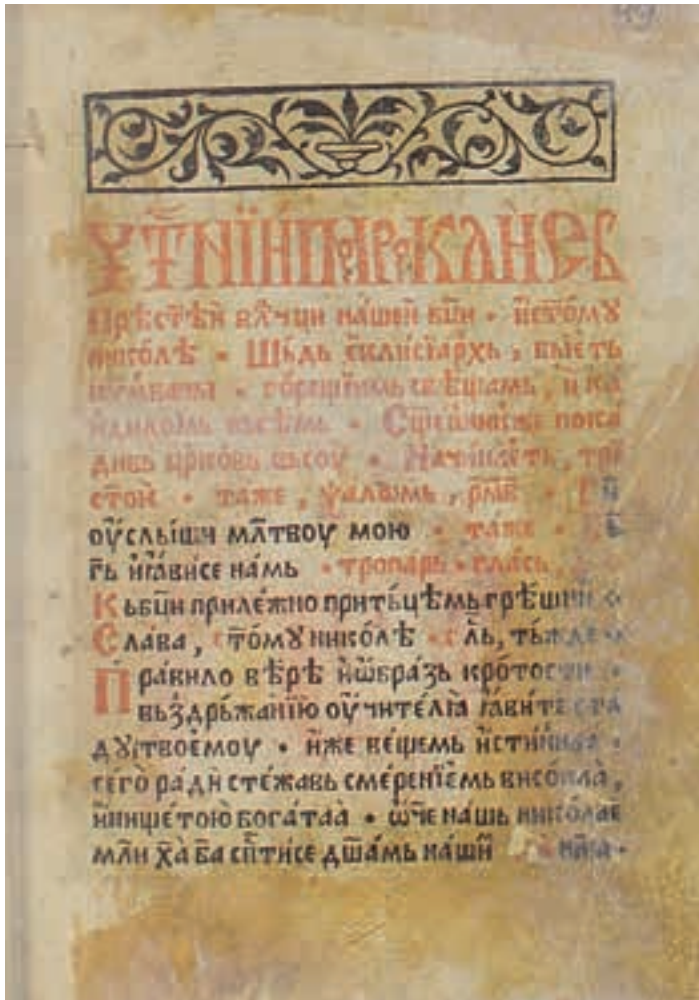 Прѣст҃ѣи влⷣчци на́шеи бц҃и · и҆ст҃о́мꙋ
нико́лѣ · Шь́дь є҆клисїа́рхь, бїе́ть
горещїимь свѣщамь, и҆ ка
ндиломь вьсѣмь · пока
дивь цр҃ковь вьсоу · Начина́єть, три
ст҃ои · та́же, ѱало́мь, рм҃в ·
оу҆слы́ши мл҃твоу мою · та́же ·
гь и҆ꙗ҆ви́се на́мь · тропарь · гла́сь,
Кьбц҃и приле́жно прите́цѣмь грѣ́шни
Сла́ва, ст҃о́мꙋ нико́лѣ · гл҃ь, ть́жде
Пра́вило вѣ́рѣ и҆ѡ҆бра́зь кро́тости ·
вьз̾дрьжа́нїю оу҆чи́телꙗ ꙗ҆ви́те ста
дꙋ твоє́моу · и҆́же ве́щемь и҆́стинна ·
сего̀ ра́ди стежа́вь смѣре́нїємь висо́каа̀,
и҆нището́ю бога́таа̀ · ѡ҆́ч҃е на́шь нико́лає
мл҃и х҃а б҃а сп҃ти́се дш҃а́мь на́ши